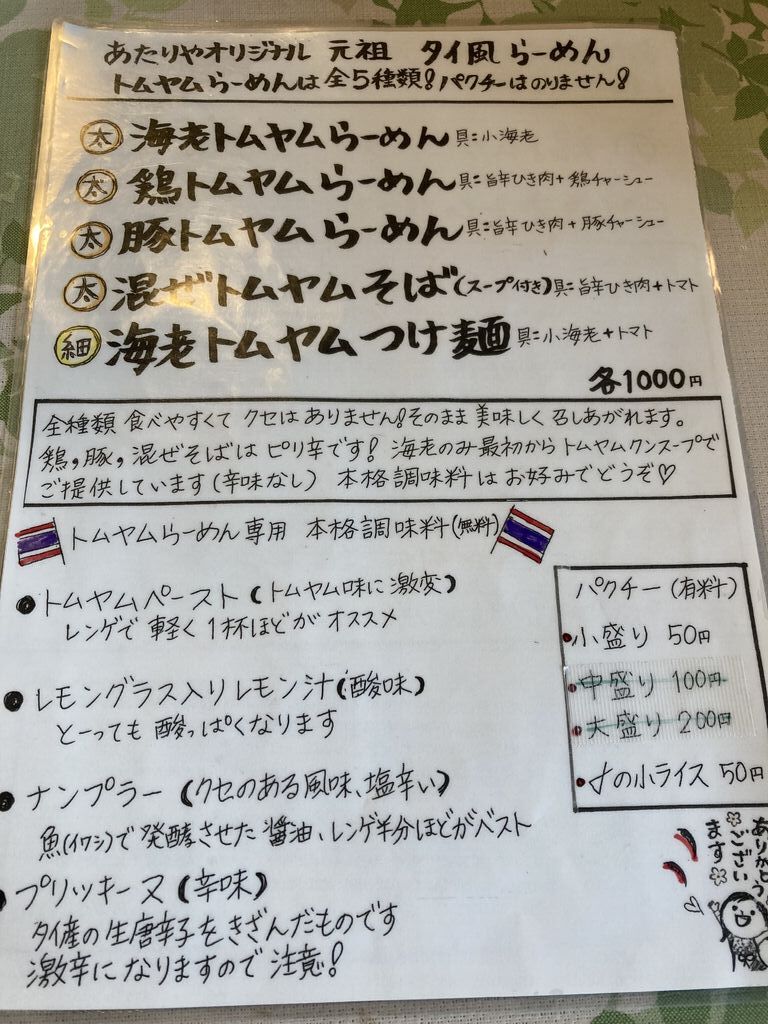 あたりやオリジナル 元祖 タイ風らーめん
トムヤムらーめんは全5種類!パクチーはのりません!
太 海老トムヤムらーめん 具=小海老
太 鶏トムヤムらーめん 具=旨辛ひき肉+鶏チャーシュー
太 豚トムヤムらーめん 具=旨辛ひき肉+豚チャーシュー
太 混ぜトムヤムそば(スープ付き)具=旨辛ひき肉+トマト
細 海老トムヤムつけ麺 具=小海老+トマト
各1000円
全種類 食べやすくて クセはありません!そのまま美味しく召しあがれます。
鶏,豚,混ぜそばは ピリ辛です! 海老のみ最初からトムヤムクンスープで
ご提供しています(辛味なし) 本格調味料はお好みでどうぞ♡
トムヤムらーめん専用 本格調味料(無料)
●トムヤムペースト(トムヤム味に激変)
レンゲで軽く1杯ほどがオススメ
●レモングラス入りレモン汁(酸味)
とーっても酸っぱくなります
●ナンプラー(クセのある風味、塩辛い)
魚(イワシ)で発酵させた醤油、レンゲ半分ほどがベスト
●プリッキーヌ(辛味)
タイ産の生唐辛子をきざんだものです
激辛になりますので注意!
パクチー(有料)
●小盛り 50円
●中盛り 100円
●大盛り 200円
●〆の小ライス 50円
ありがとう
ござい
ます